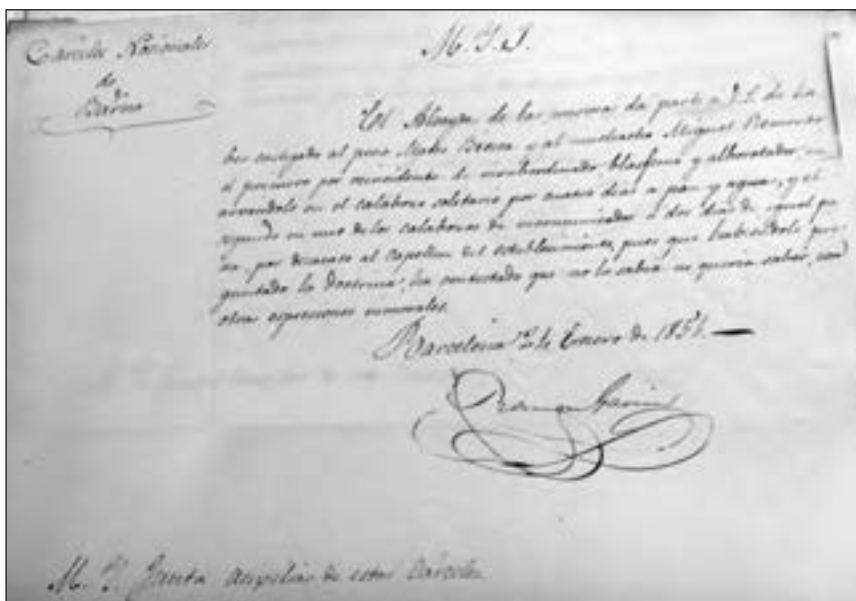 Carceles Nacionales
de
Barna
M. I. J.
El Alcayde de las mismas da parte a V.S. de ha
ber castigado al preso Mateo y al muchacho Miguel
el primero por reincidente de insubordinado, blasfemo y alborotador,
en el calabozo solitario por cuatro dias a pan y agua, y el
segundo en uno de los calabozos de incomunicados a dos dias de igual pe
na, por desacato al Capellan del establecimiento, pues que habiendole pre
guntado la Doctrina, ha contestado que no la sabia ni queria saber, con
otras espresiones inmorales.
Barcelona 24 Enero de 1854.
M. I. Junta Ausiliar de estas Cárceles